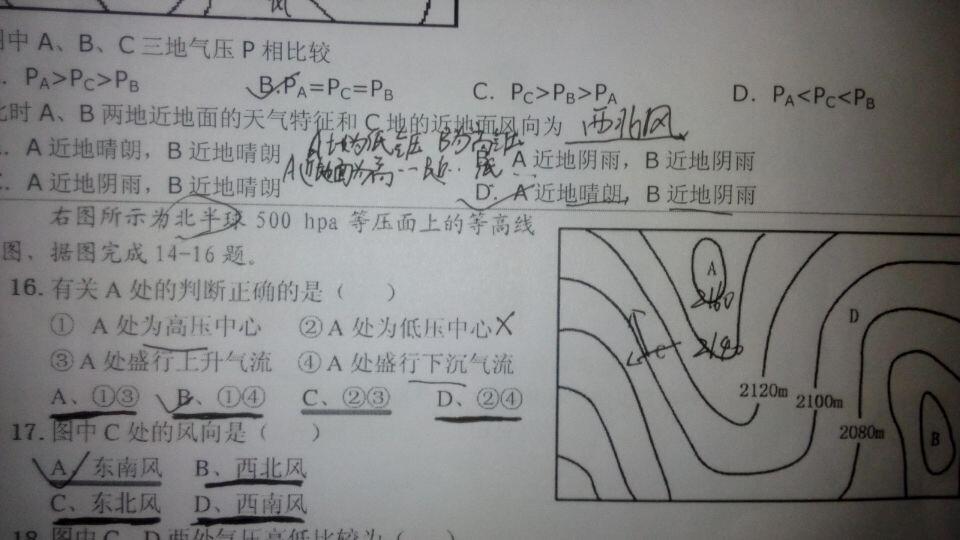 风
图中 A、B、C 三地气压 P 相比较
. PA>PC>PB B.PA=PC=PB C. PC>PB>PA D. PA<PC<PB
此时 A、B 两地近地面的天气特征和 C 地的近地面风向为 西北风
A地为低气压 B为高气压
. A 近地晴朗，B 近地晴朗 B. A 近地阴雨，B 近地阴雨
A近地面为高
. A 近地阴雨，B 近地晴朗 D. A 近地晴朗，B 近地阴雨
右图所示为北半球 500 hpa 等压面上的等高线
图、据图完成 14-16 题。
16. 有关 A 处的判断正确的是（ ）
① A 处为高压中心 ②A 处为低压中心X
③A 处盛行上升气流 ④A 处盛行下沉气流
A、①③ B、①④ C、②③ D、②④
17. 图中 C 处的风向是（ ）
A、东南风 B、西北风
C、东北风 D、西南风
18. 图中 C、D 两处气压高低比较为（ ）
A
2160
D
C
2140
2120m
2100m
2080m
B